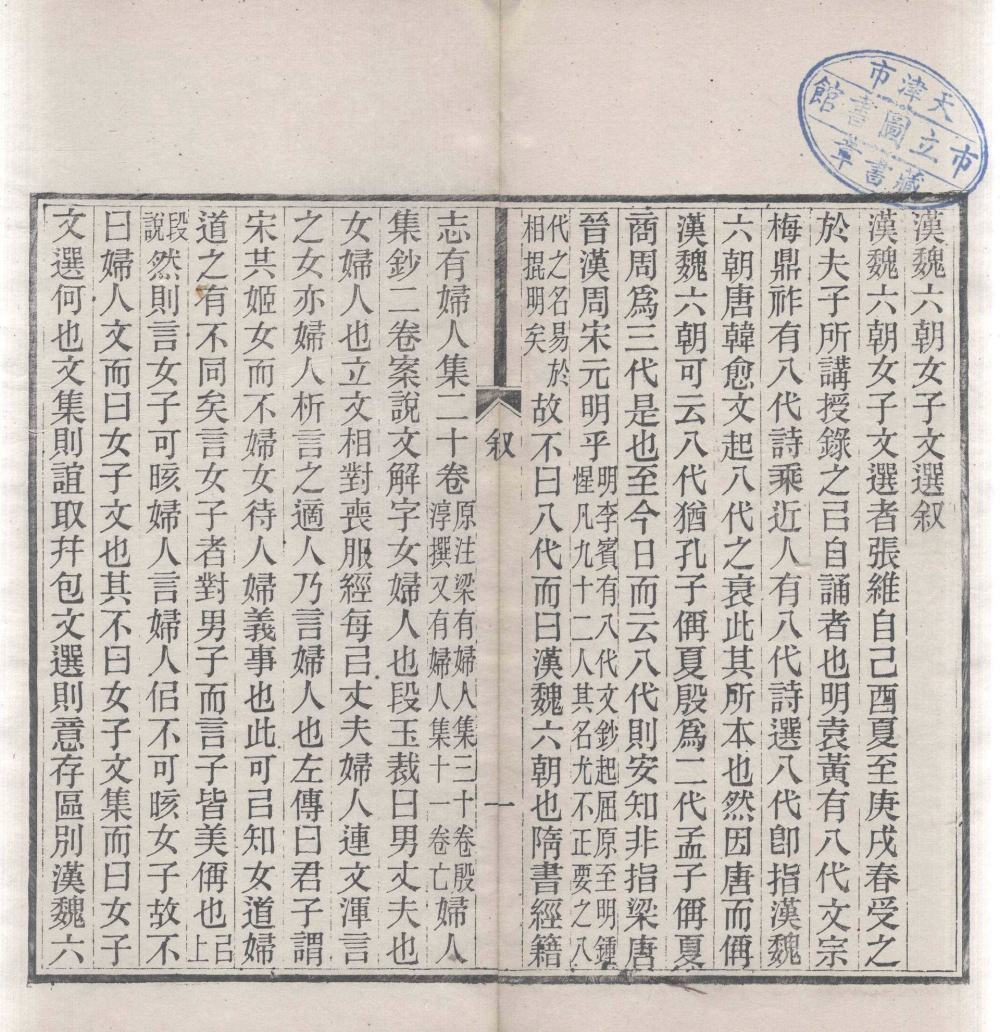 天津市
市立圖書館
藏書章
漢魏六朝女子文選叙
漢魏六朝女子文選者張維自己酉夏至庚戌春受之
於夫子所講授錄之㠯自誦者也明袁黃有八代文宗
梅鼎祚有八代詩乘近人有八代詩選八代卽指漢魏
六朝唐韓愈文起八代之衰此其所本也然因唐而偁
漢魏六朝可云八代猶孔子偁夏殷爲二代孟子偁夏
商周爲三代是也至今日而云八代則安知非指梁唐
晉漢周宋元明乎明李賓有八代文鈔起屈原至明鍾惺凡九十二人其名尤不正要之八
代之名易於相掍明矣故不曰八代而曰漢魏六朝也隋書經籍
叙
一
志有婦人集二十卷原注梁有婦人集三十卷殷淳撰又有婦人集十一卷亡婦人
集鈔二卷案說文解字女婦人也段玉裁曰男丈夫也
女婦人也立文相對喪服經每㠯丈夫婦人連文渾言
之女亦婦人析言之適人乃言婦人也左傳曰君子謂
宋共姬女而不婦女待人婦義事也此可㠯知女道婦
道之有不同矣言女子者對男子而言子皆美偁也㠯上
段說然則言女子可晐婦人言婦人佀不可晐女子故不
曰婦人文而曰女子文也其不曰女子文集而曰女子
文選何也文集則誼取幷包文選則意存區別漢魏六